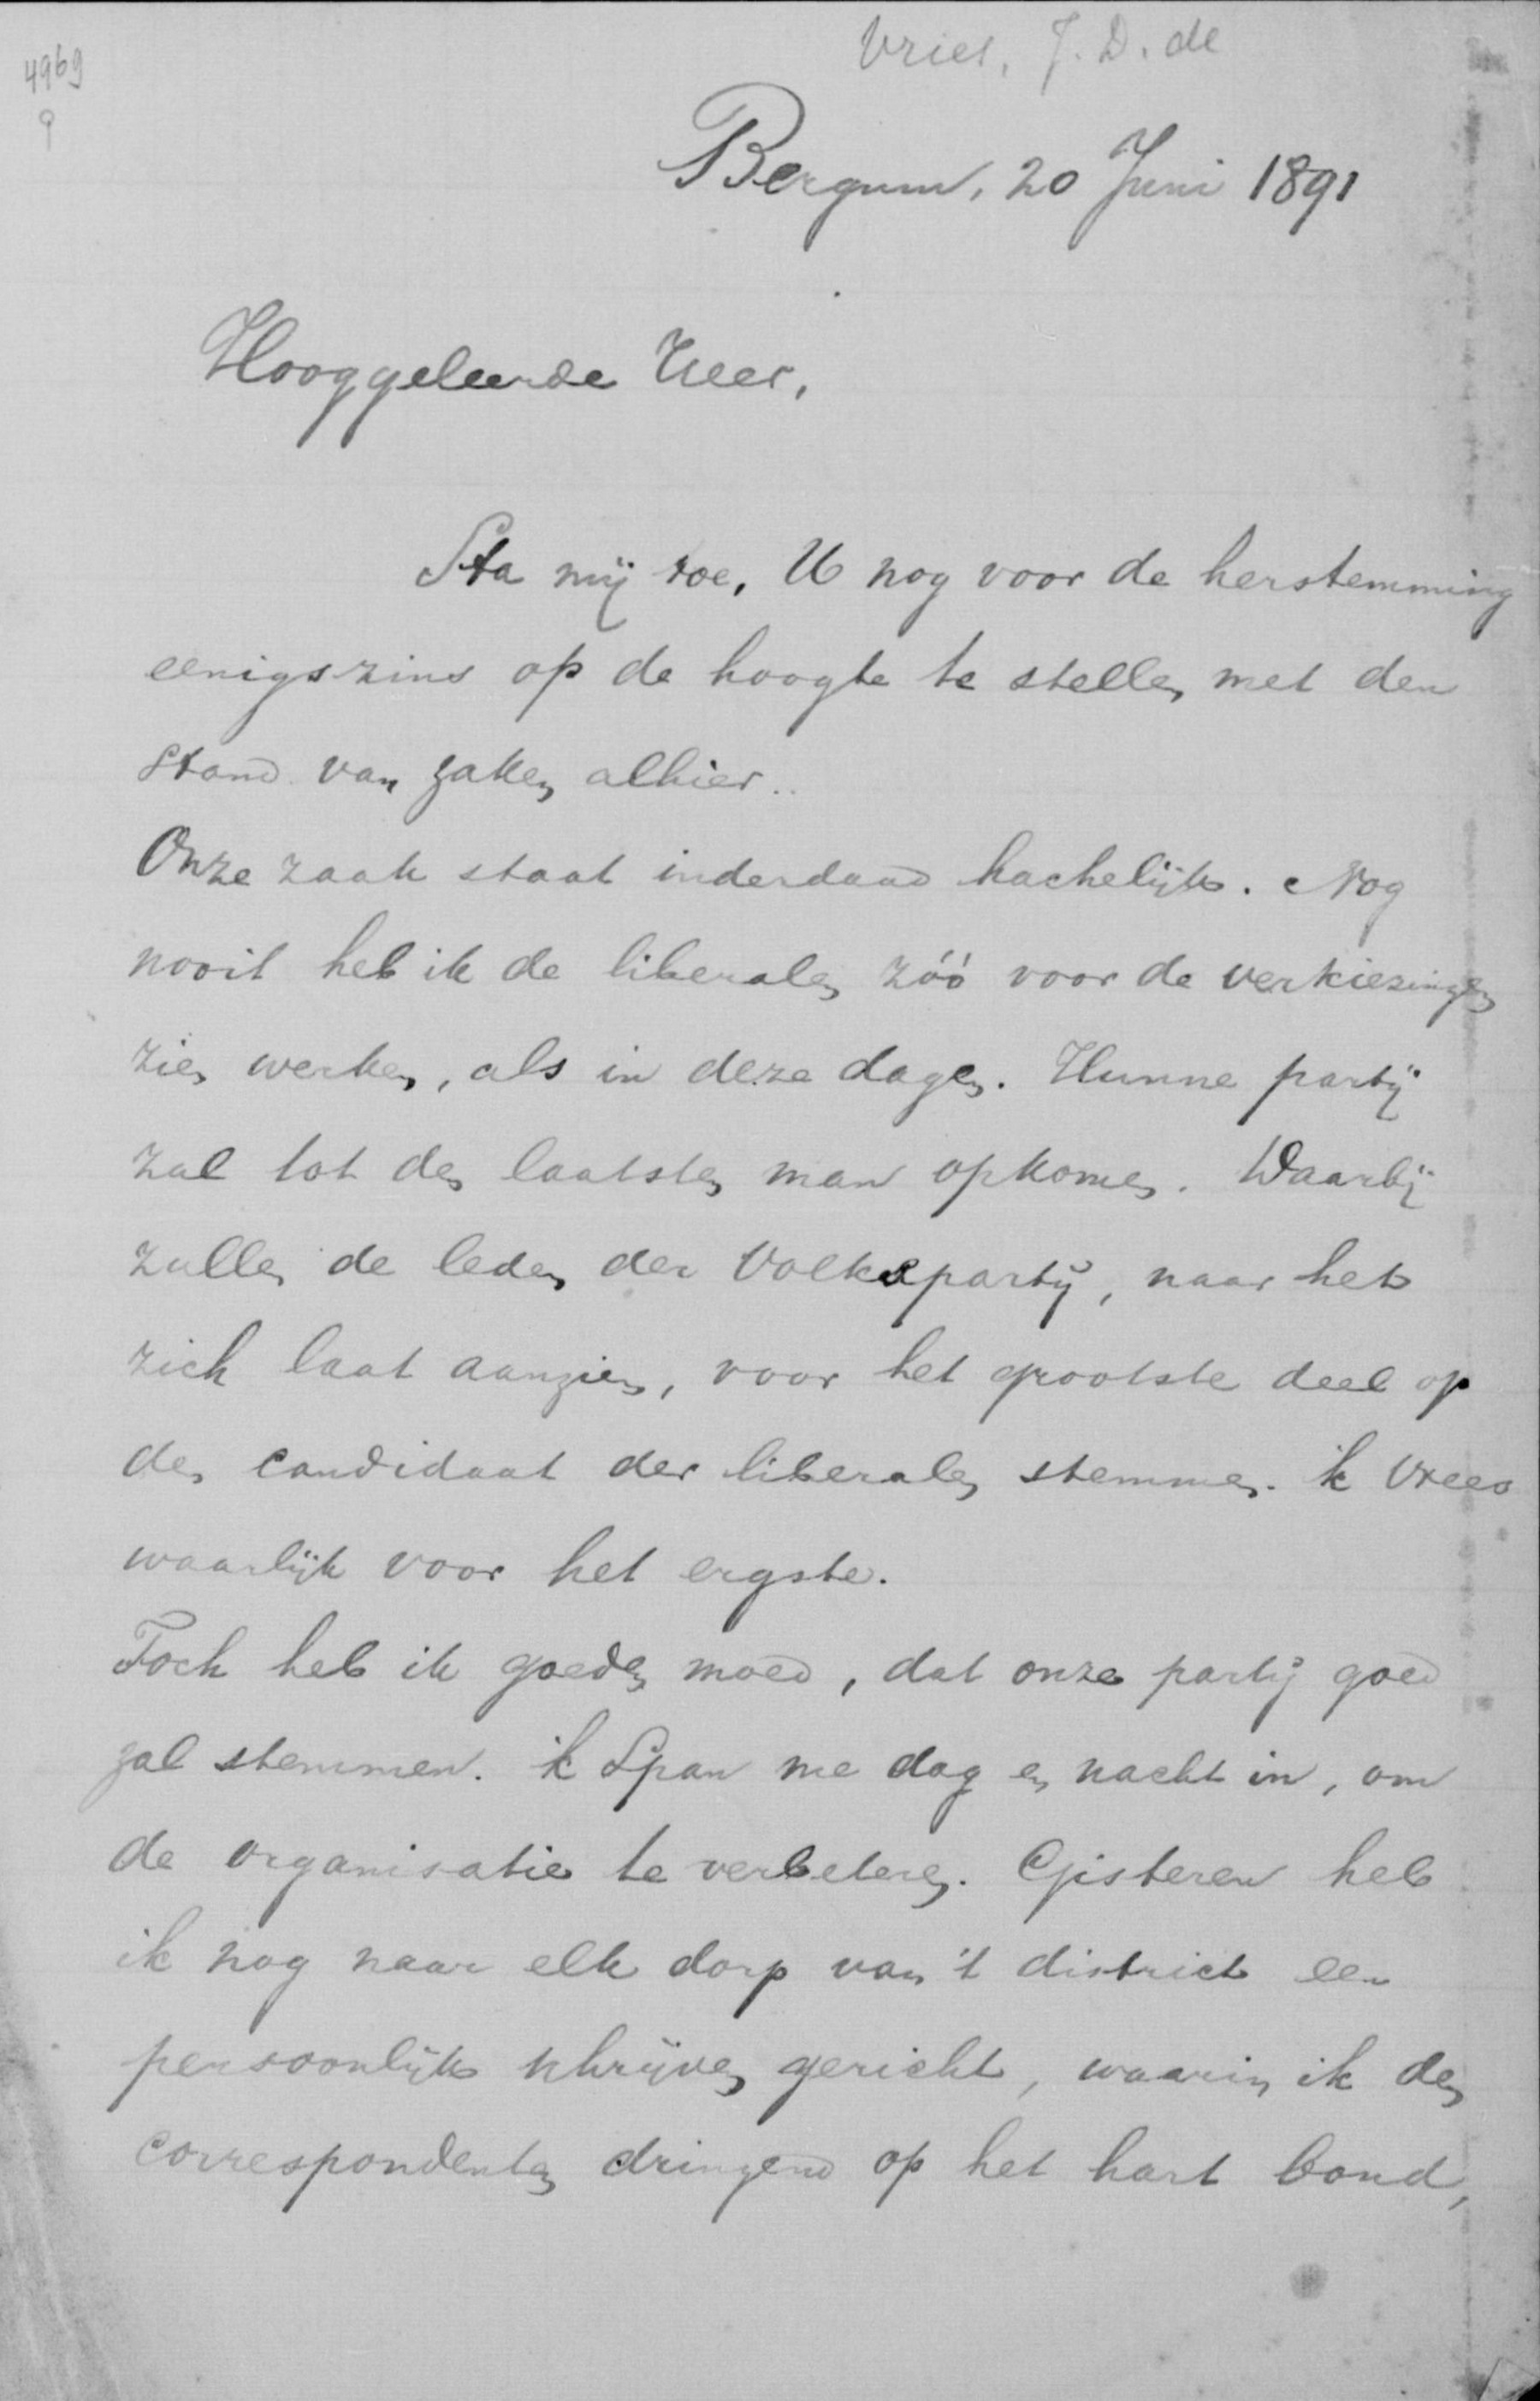 4969
Vries, J. D. de
Bergum, 20 Juni 1891
Hooggeleerde Heer,
Sta mij toe, U nog voor de herstemming
eenigszins op de hoogte te stellen met den
stand van zaken alhier..
Onze zaak staat inderdaad hachelijk. Nog
nooit heb ik de liberalen zóó voor de verkiezingen
zien werken, als in deze dagen. Hunne partij
zal tot den laatsten man opkomen. Waarbij
zullen de leden der Volkspartij, naar het
zich laat aanzien, voor het grootste deel op
den candidaat der liberalen stemmen. ik vrees
waarlijk voor het ergste.
Toch heb ik goeden moed, dat onze partij goed
zal stemmen. ik span me dag en nacht in, om
de organisatie te verbeteren. Gisteren heb
ik nog naar elk dorp van 't district een
persoonlijk schrijven gericht, waarin ik den
correspondenten dringend op het hart bond,